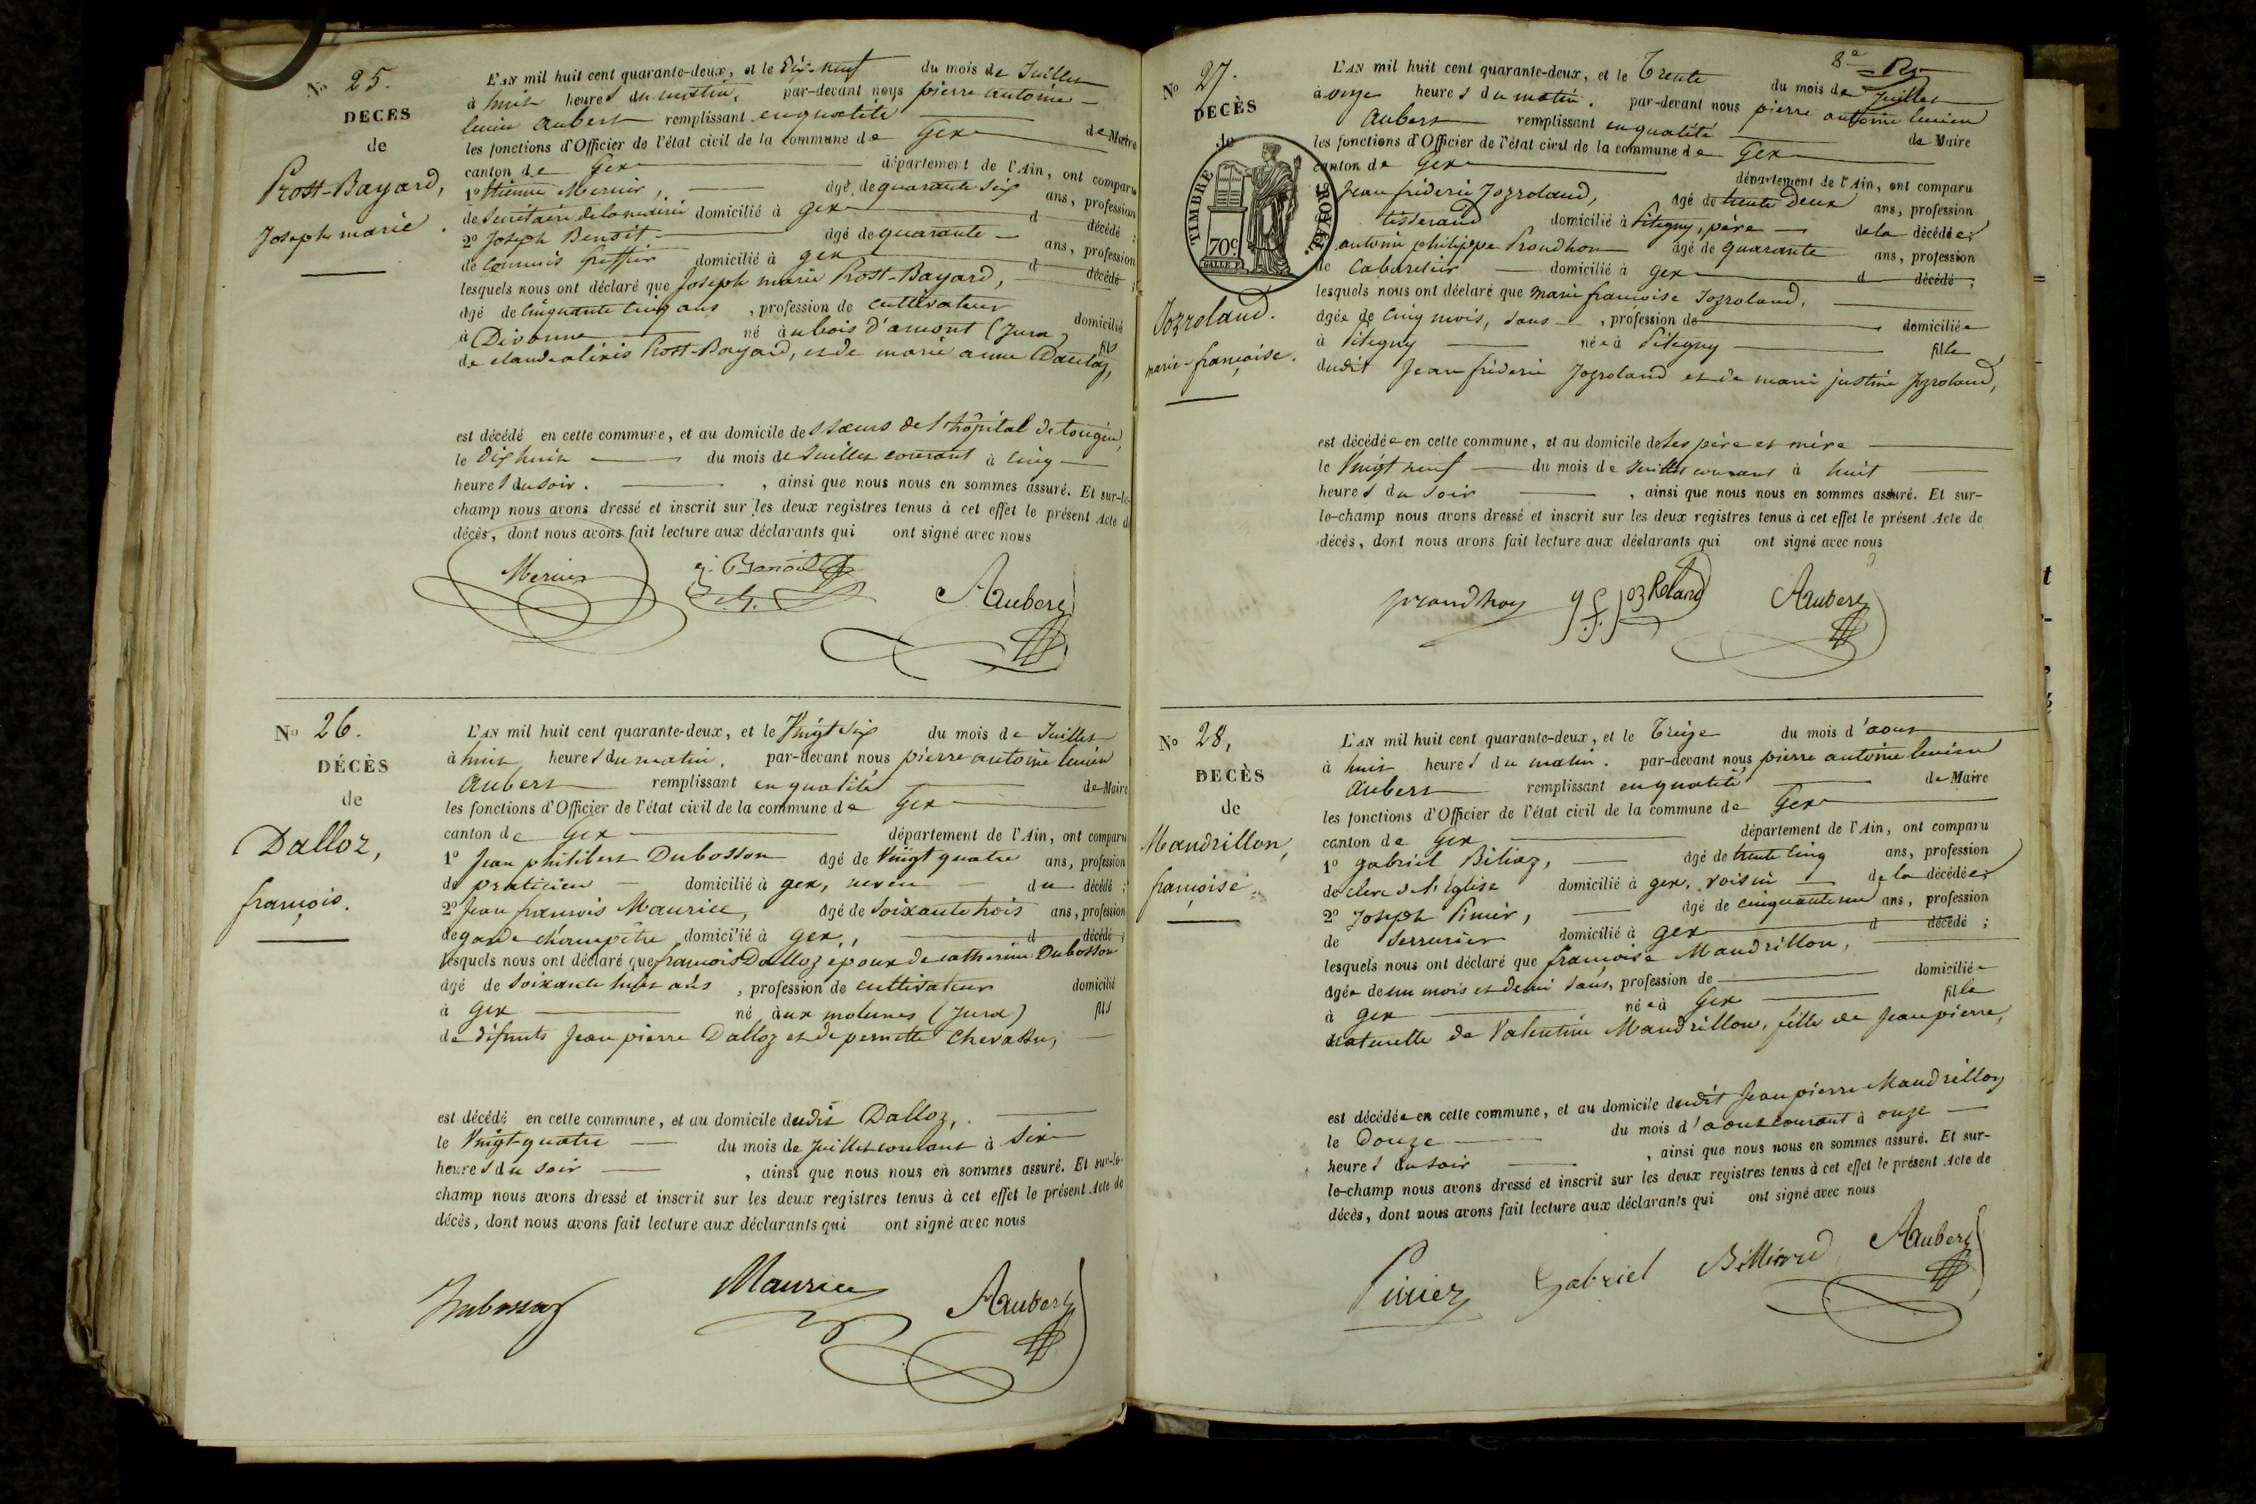 No 25.
DÉCÈS
de
Prost-Bayard,
Joseph marie.
L'AN mil huit cent quarante-deux, et le Dix-neuf du mois de Juillet
à huit heures du matin, par-devant nous pierre antoine
lucien aubert remplissant en qualité de Maire
les fonctions d'Officier de l'état civil de la commune de Gex
canton de Gex département de l'Ain, ont comparu
1o Etienne Mernier, âgé de quarante six ans, profession
de Secrétaire de la mairie domicilié à gex d décédé ;
2o Joseph Benoit âgé de quarante ans, profession
de commis Greffier domicilié à gex d décédé ;
lesquels nous ont déclaré que Joseph marie Prost-Bayard,
âgé de cinquante cinq ans , profession de cultivateur domicilié
à Divonne né au bois d'amont (Jura) fils
de claude alexis Prost-Bayard, et de marie anne
est décédé en cette commune, et au domicile des sœurs de l'hôpital de tougin,
le Dix huit du mois de Juillet courant à cinq
heures du soir. , ainsi que nous nous en sommes assuré. Et sur-le-
champ nous avons dressé et inscrit sur les deux registres tenus à cet effet le présent Acte de
décès, dont nous avons fait lecture aux déclarants qui ont signé avec nous
Mernier j. Benoit Aubert
No 26.
DÉCÈS
de
Dalloz,
françois.
L'AN mil huit cent quarante-deux, et le Vingt six du mois de Juillet
à huit heures du matin, par-devant nous pierre antoine lucien
aubert remplissant en qualité de Maire
les fonctions d'Officier de l'état civil de la commune de Gex
canton de Gex département de l'Ain, ont comparu
1o Jean philibert Dubosson âgé de Vingt quatre ans, profession
de praticien domicilié à gex, neveu du décédé ;
2o Jean françois Maurice, âgé de soixante trois ans, profession
de garde champêtre domicilié à gex, d décédé ;
lesquels nous ont déclaré que francois Dalloz époux de catherine Dubosson
âgé de soixante huit ans , profession de cultivateur domicilié
à gex né aux molunes (Jura) fils
de défunts Jean pierre Dalloz et de pernette chevassu,
est décédé en cette commune, et au domicile dudit Dalloz,
le Vingt quatre du mois de Juillet courant à six
heures du soir , ainsi que nous nous en sommes assuré. Et sur-le-
champ nous avons dressé et inscrit sur les deux registres tenus à cet effet le présent Acte de
décès, dont nous avons fait lecture aux déclarants qui ont signé avec nous
Dubosson Maurice Aubert
8e
No 27.
DÉCÈS
de
TIMBRE ROYAL
70c.
Jozroland.
marie-françoise.
L'AN mil huit cent quarante-deux, et le Trente du mois de Juillet
à onze heures du matin. par-devant nous pierre antoine lucien
aubert remplissant en qualité de Maire
les fonctions d'Officier de l'état civil de la commune de Gex
canton de Gex département de l'Ain, ont comparu
Jean fréderic Jozroland, âgé de trente Deux ans, profession
tisserand domicilié à Pitegny, père de la décédée;
antoine philippe Proudhon âgé de quarante ans, profession
de cabaretier domicilié à gex d décédé ;
lesquels nous ont déclaré que marie francoise Jozroland,
âgée de cinq mois, sans , profession de domiciliée
à Pitegny née à Pitegny fille
dudit Jean fréderic Jozroland et de marie justine Jozroland,
est décédée en cette commune, et au domicile de ses père et mère
le Vingt neuf du mois de Juillet courant à huit
heures du soir , ainsi que nous nous en sommes assuré. Et sur-
le-champ nous avons dressé et inscrit sur les deux registres tenus à cet effet le présent Acte de
décès, dont nous avons fait lecture aux déclarants qui ont signé avec nous
proudhon J f jozRoland Aubert
No 28.
DÉCÈS
de
Mandrillon,
françoise.
L'AN mil huit cent quarante-deux, et le Treize du mois d'aout
à huit heures du matin. par-devant nous pierre antoine lucien
aubert remplissant en qualité de Maire
les fonctions d'Officier de l'état civil de la commune de Gex
canton de Gex département de l'Ain, ont comparu
1o gabriel Biliaz, âgé de trente cinq ans, profession
de clerc de l'Eglise domicilié à gex, voisin de la décédée;
2o Joseph Pinier, âgé de cinquante un ans, profession
de serrurier domicilié à gex d décédé ;
lesquels nous ont déclaré que françoise Mandrillon,
âgée de un mois et demi sans, profession de domiciliée
à gex née à Gex fille
naturelle de Valentine Mandrillon, fille de Jean pierre,
est décédée en cette commune, et au domicile dudit Jean pierre Mandrillon
le Douze du mois d'aout courant à onze
heures du soir , ainsi que nous nous en sommes assuré. Et sur-
le-champ nous avons dressé et inscrit sur les deux registres tenus à cet effet le présent Acte de
décès, dont nous avons fait lecture aux déclarants qui ont signé avec nous
Pinier Gabriel Aubert